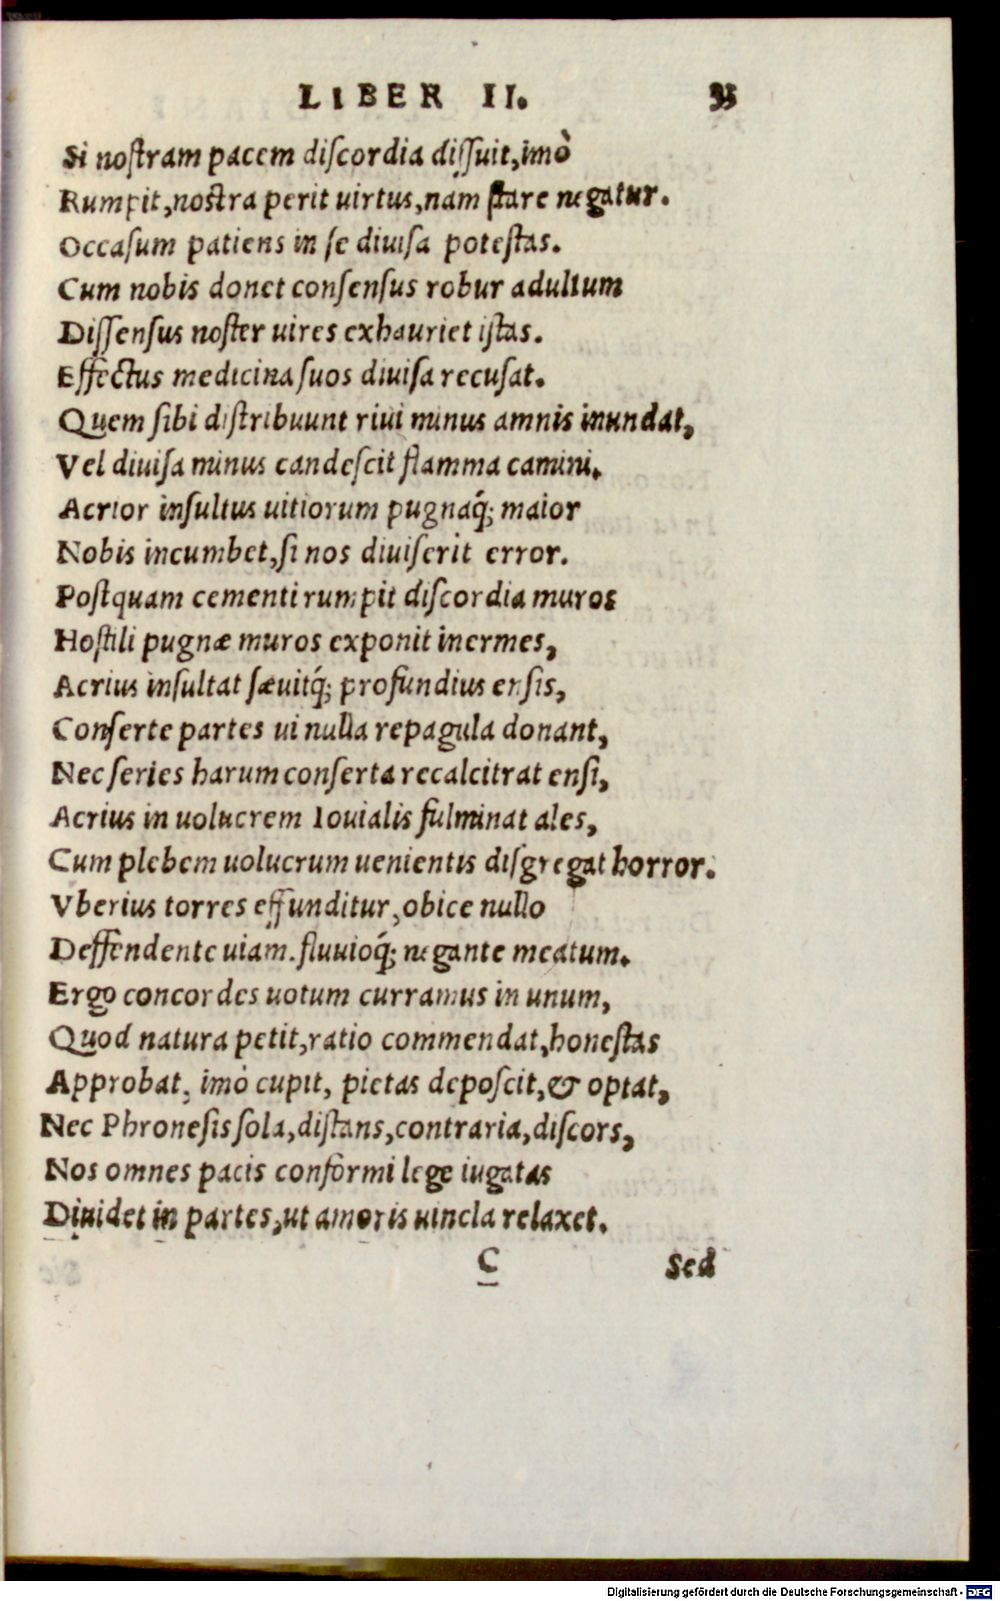 LIBER II. 33
Si noſtram pacem diſcordia diſſuit, imò
Rumpit, noſtra perit uirtus, nam ſtare negatur.
Occaſum patiens in ſe diuiſa poteſtas.
Cum nobis donet conſenſus robur adultum
Diſſenſus noſter uires exhauriet iſtas.
Effectus medicina ſuos diuiſa recuſat.
Quem ſibi diſtribuunt riui minus amnis inundat,
Vel diuiſa minus candeſcit flamma camini.
Acrior inſultus uitiorum pugnaq́; maior
Nobis incumbet, ſi nos diuiſerit error.
Poſtquam cementi rumpit diſcordia muros
Hoſtili pugnæ muros exponit inermes,
Acrius inſultat ſæuitq́; profundius enſis,
Conſerte partes ui nulla repagula donant,
Nec ſeries harum conſerta recalcitrat enſi,
Acrius in uolucrem Iouialis fulminat ales,
Cum plebem uolucrum uenientis diſgregat horror.
Vberius torres effunditur, obice nullo
Deffendente uiam. fluuioq́; negante meatum.
Ergo concordes uotum curramus in unum,
Quod natura petit, ratio commendat, honeſtas
Approbat, imò cupit, pietas depoſcit, & optat,
Nec Phroneſis ſola, diſtans, contraria, diſcors,
Nos omnes pacis conformi lege iugatas
Diuidet in partes, ut amoris uincla relaxet.
C Sed
Digitalisierung gefördert durch die Deutsche Forschungsgemeinschaft - DFG